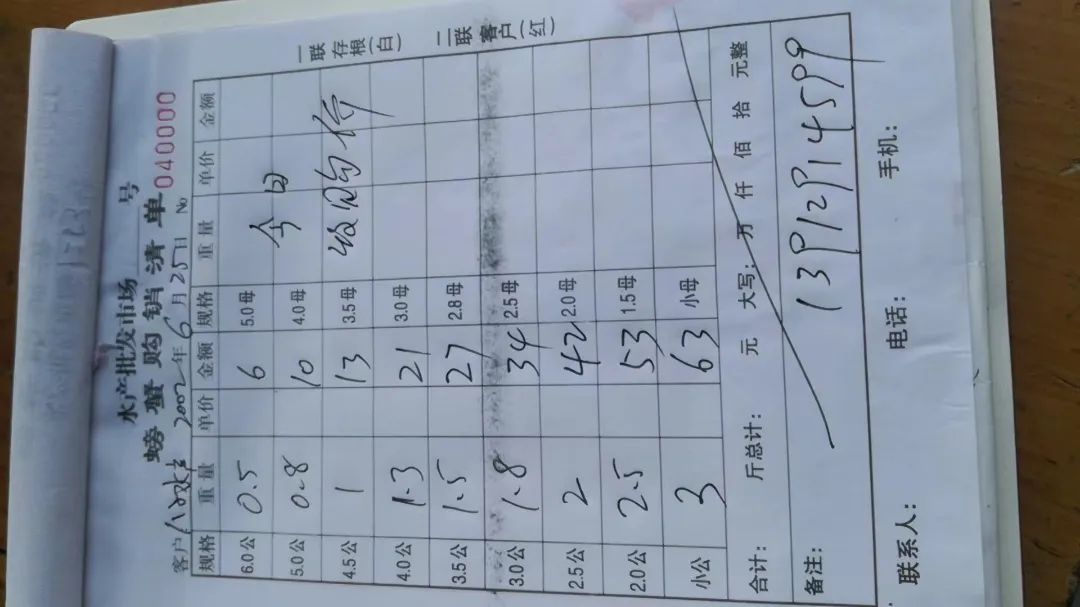 水产批发市场 号
螃蟹购销清单
客户 2002年6月25日 No 040000
规格 重量 单价 金额 规格 重量 单价 金额
6.0公 0.5 6 5.0母
5.0公 0.8 10 4.0母 今日
4.5公 1 13 3.5母 收购价
4.0公 1.3 21 3.0母
3.5公 1.5 27 2.8母
3.0公 1.8 34 2.5母
2.5公 2 42 2.0母
2.0公 2.5 53 1.5母
小公 3 63 小母
合计: 斤总计: 元 大写: 万 仟 佰 拾 元整
备注: 13912914599
联系人: 电话: 手机:
一联存根(白)
二联客户(红)